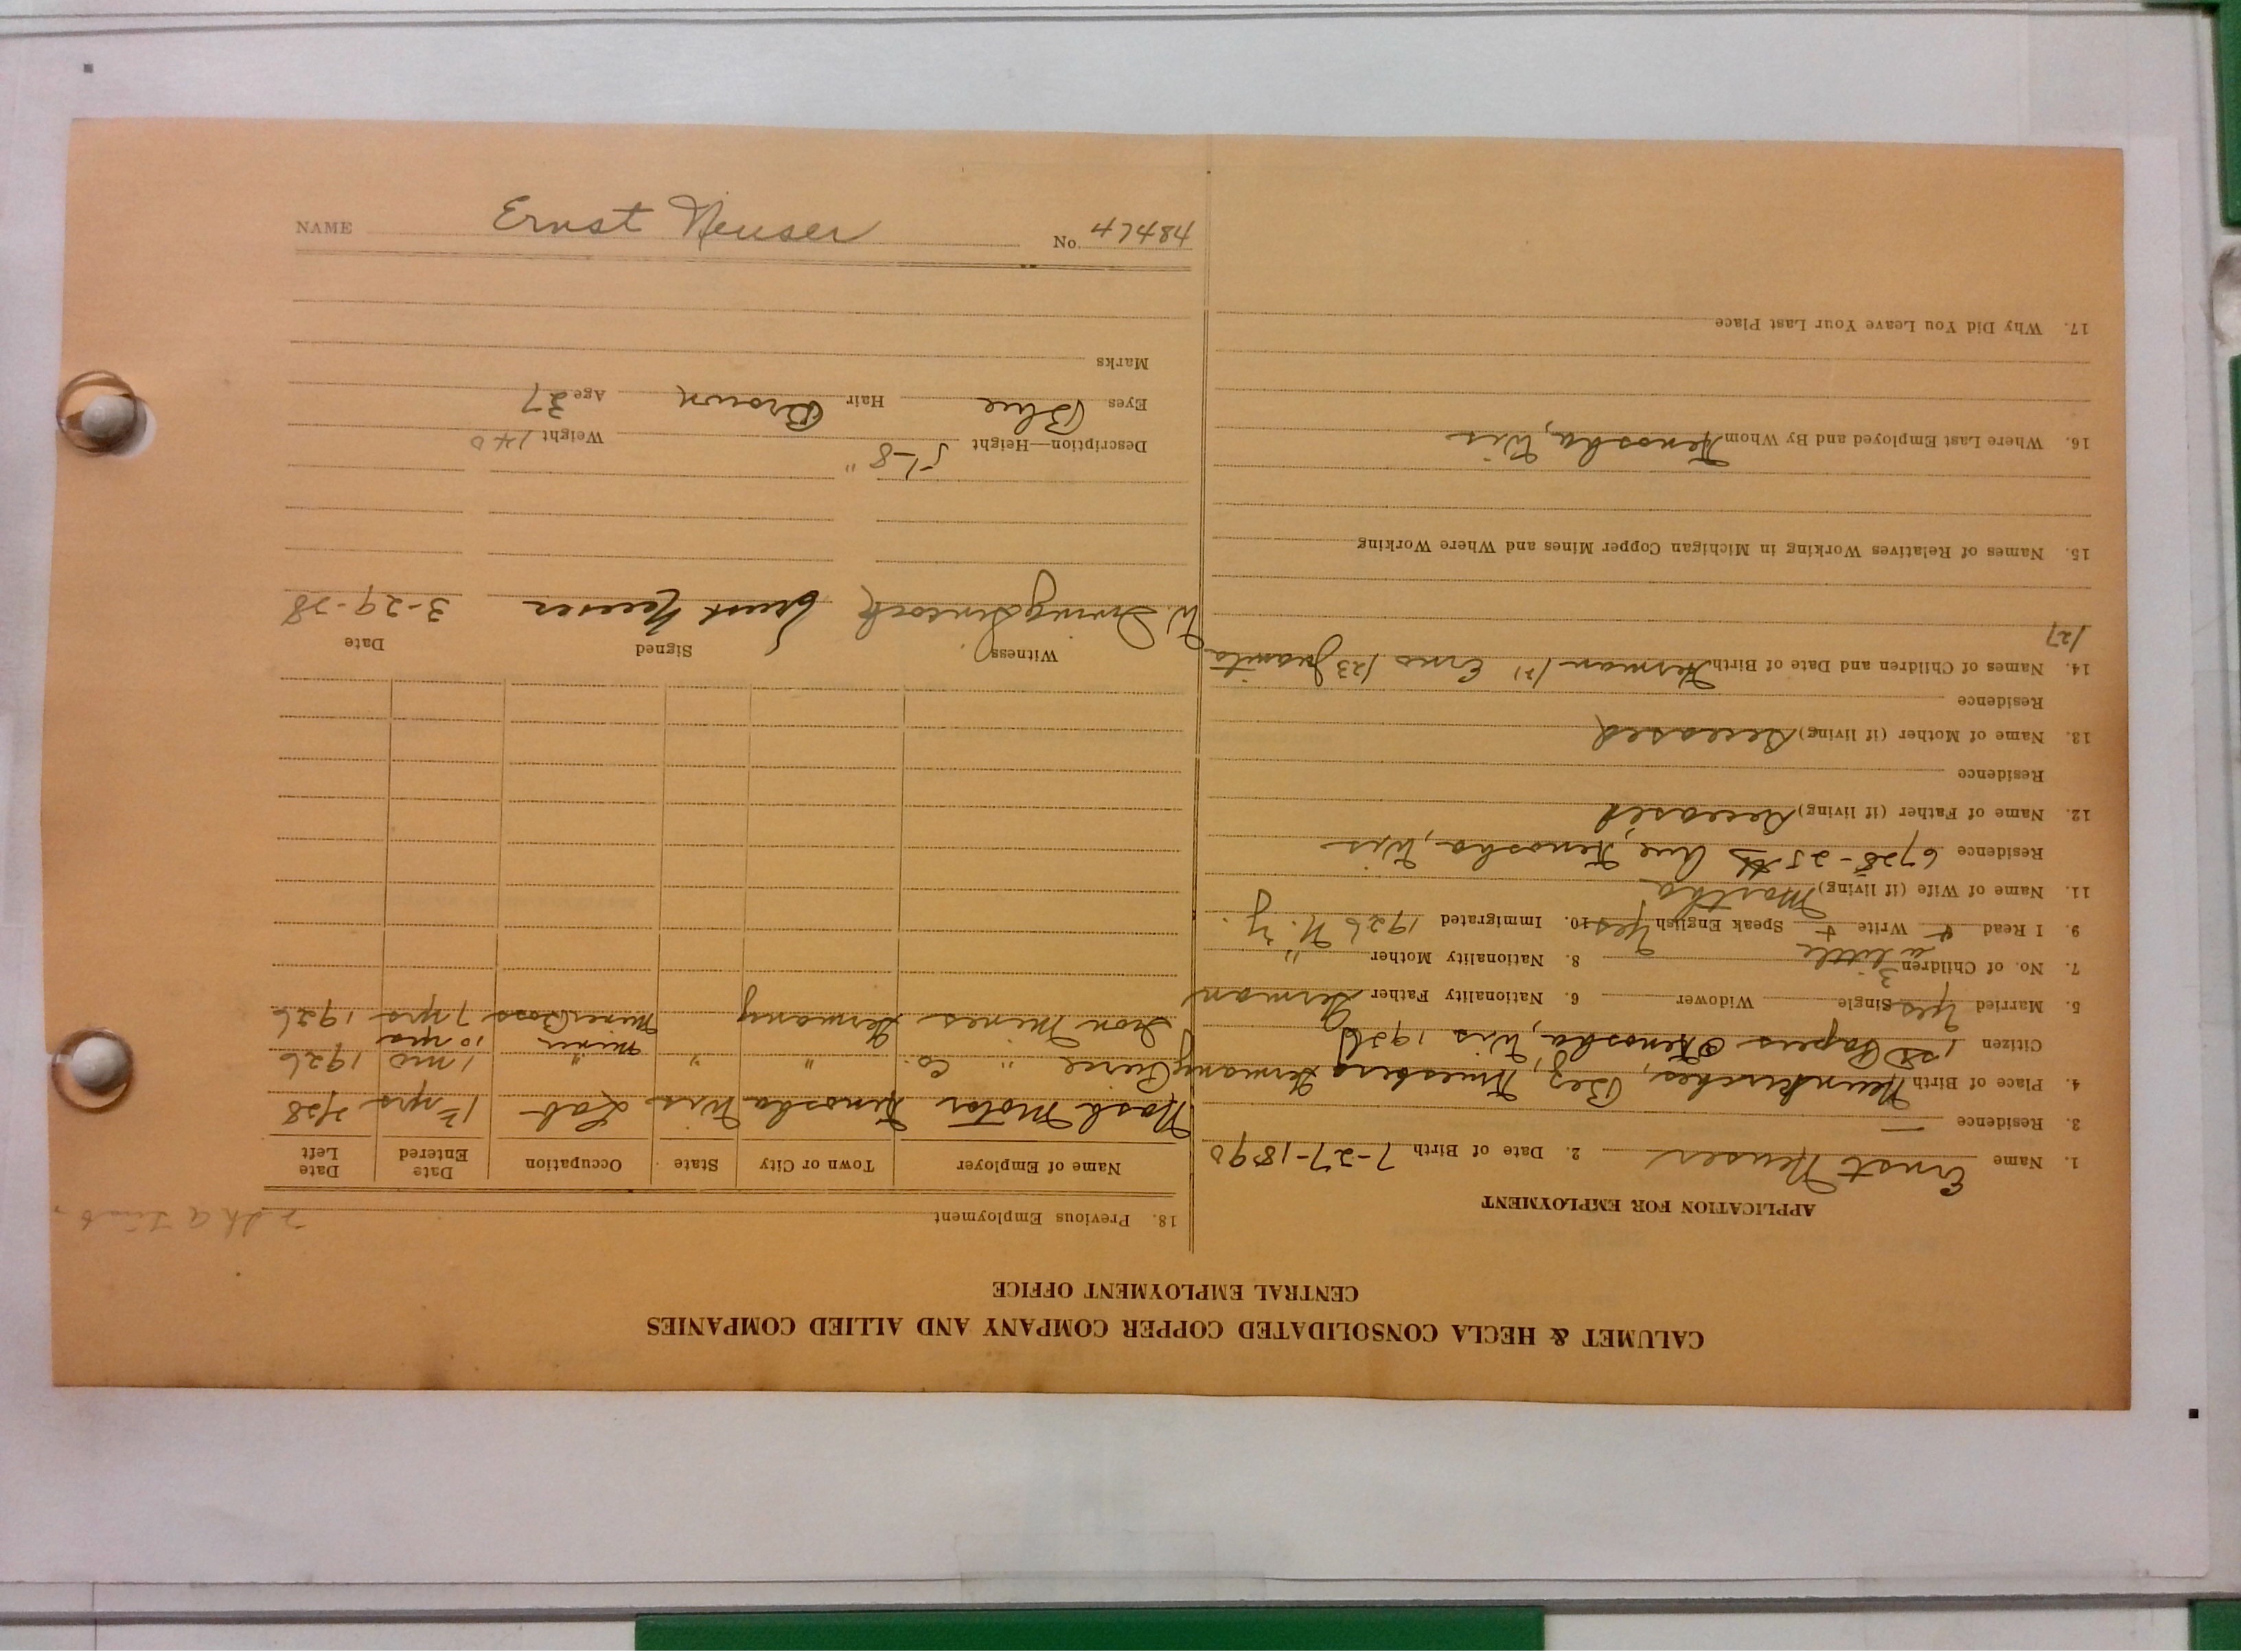 CALUMET & HECLA CONSOLIDATED COPPER COMPANY AND ALLIED COMPANIES
CENTRAL EMPLOYMENT OFFICE
APPLICATION FOR EMPLOYMENT
1. Name Ernst Neuser 2. Date of Birth 7-27-1890
3. Residence —
4. Place of Birth Neunkirchen, Bez, Germany
Citizen 1st Papers Kenosha, Wis 1926
5. Married Yes Single Widower 6. Nationality Father German
7. No. of Children 3 8. Nationality Mother "
a little
9. I Read + Write + Speak English Yes 10. Immigrated 1926 N. Y.
11. Name of Wife (if living) Martha
Residence 6728-25th Ave, Kenosha, Wis
12. Name of Father (if living) Deceased
Residence
13. Name of Mother (if living) Deceased
Residence
14. Names of Children and Date of Birth Herman /21 Erno /23 Juanita
/27
15. Names of Relatives Working in Michigan Copper Mines and Where Working
16. Where Last Employed and By Whom Kenosha, Wis
17. Why Did You Leave Your Last Place
18. Previous Employment
Name of Employer Town or City State Occupation Date Entered Date Left
Nash Motor Kenosha Wis Lab 2/28
Pierce " Co. " " " 1 mo 1926
Miner 10 yrs
Iron Mines Germany Miner Boss 7 yrs 1926
Witness Signed Date
W. Ernst Neuser 3-29-28
Description—Height 5'-8" Weight 140
Eyes Blue Hair Brown Age 37
Marks
NAME Ernst Neuser No. 47484